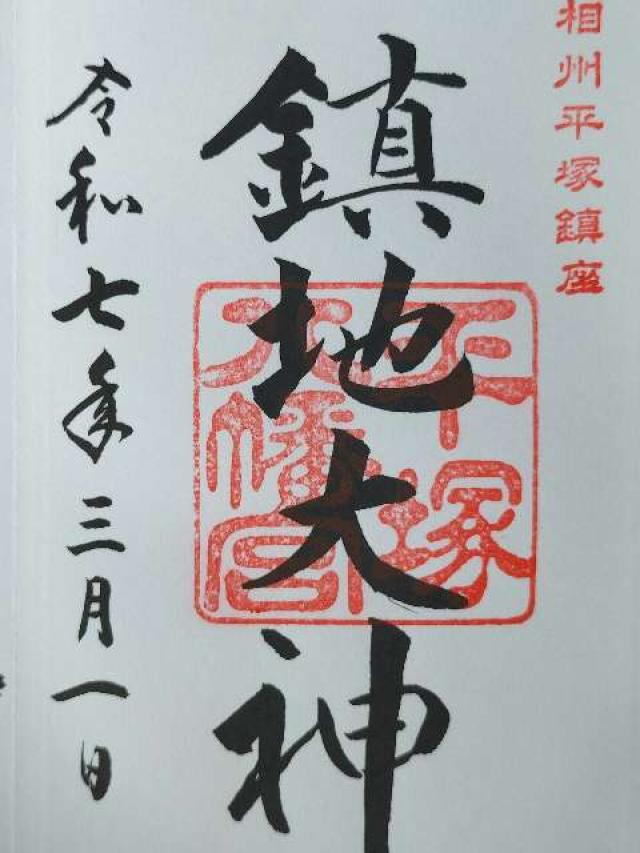 相州平塚鎮座
鎮地大神
平塚
八幡宮
令和七年三月一日